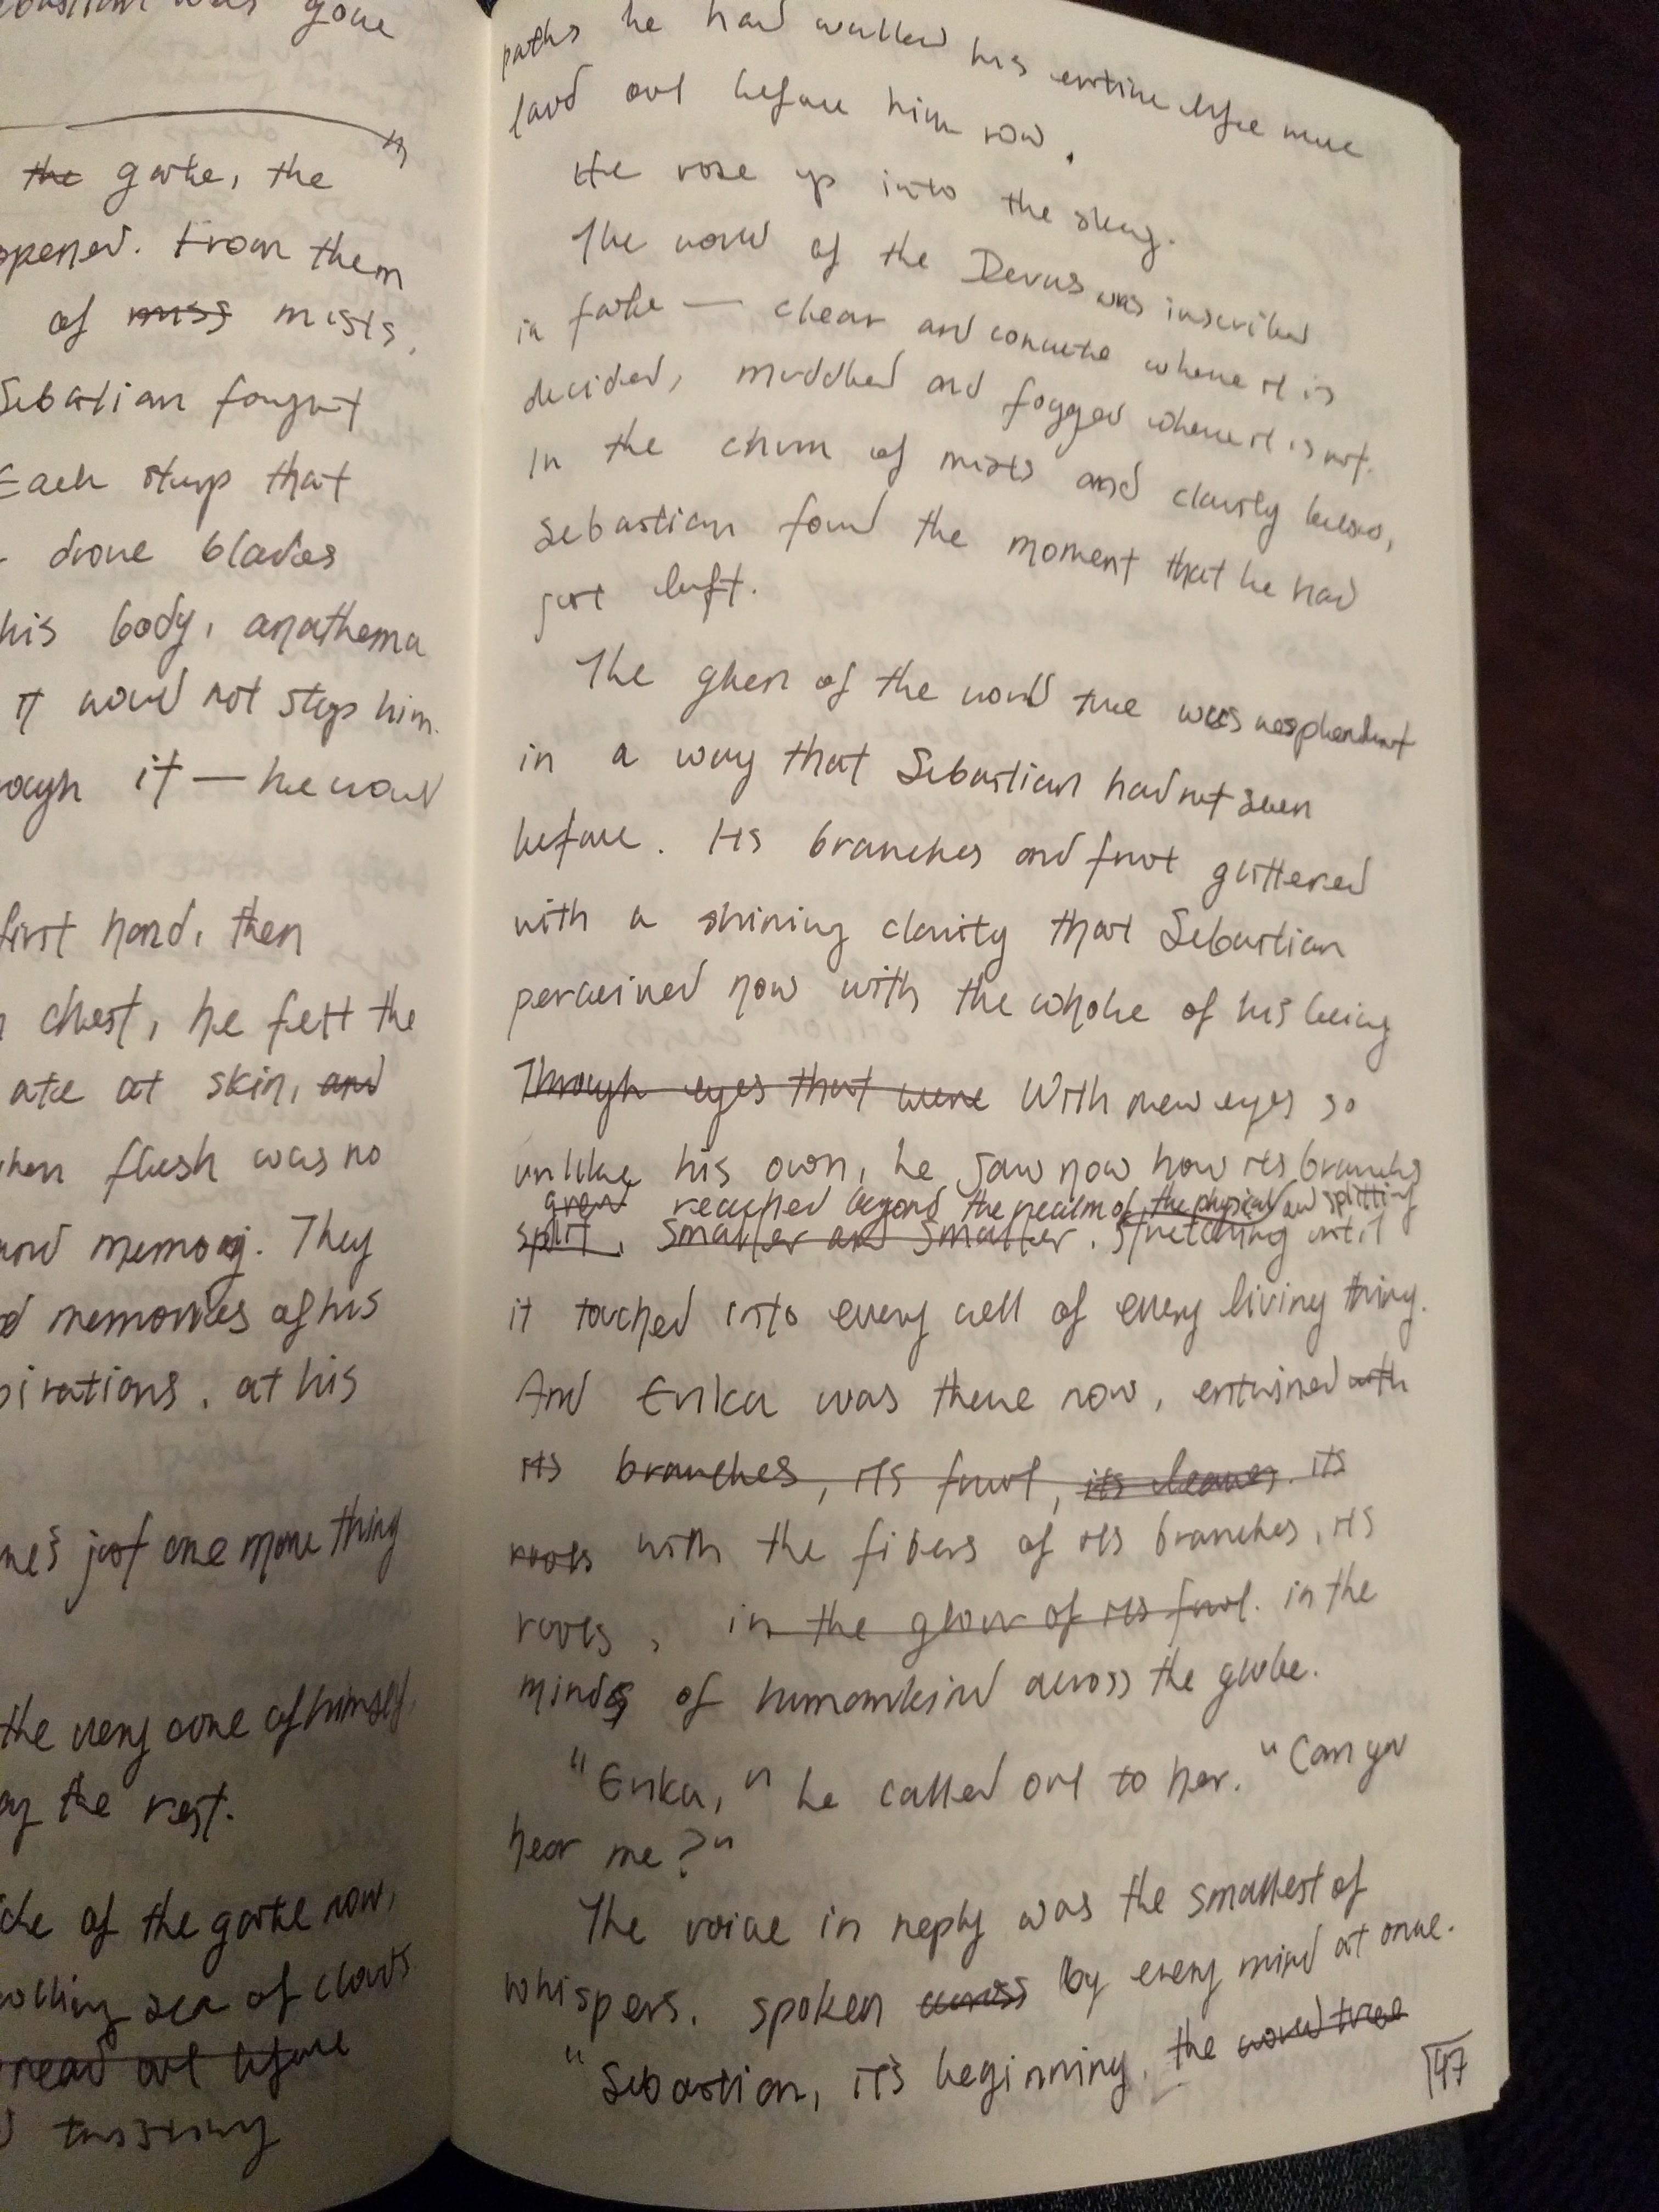 was gone
the gate, the
opened. From them
of miss mists.
Sebastian fought
Each step that
drove blades
his body, anathema
it would not stop him.
it — he would
first hand, then
chest, he felt the
ate at skin, and
flesh was no
memory. They
memories of his
at his
just one more thing
the very core of himself,
the rest.
of the gate now,
sea of clouds
out before
twisting
paths he had walked his entire life were
laid out before him now.
He rose up into the sky.
The world of the Devas was inscribed
in fate — clear and concrete where it is
decided, muddled and fogged where it is not.
In the churn of mists and clarity below,
Sebastian found the moment that he had
just left.
The gleen of the world tree was resplendent
in a way that Sebastian had not seen
before. Its branches and fruit glittered
with a shining clarity that Sebastian
perceived now with the whole of his being
Through eyes that were With new eyes so
unlike his own, he saw now how its branches
grew reached beyond the realm of the physical and splitting
split, smaller and smaller, stretching until
it touched into every cell of every living thing.
And Erika was there now, entwined with
its branches, its fruit, its leaves. its
roots with the fibers of its branches, its
roots, in the glow of its fruit. in the
minds of humankind across the globe.
"Erika," he called out to her. "Can you
hear me?"
The voice in reply was the smallest of
whispers. spoken across by every mind at once.
"Sebastian, it's beginning. the world tree
147